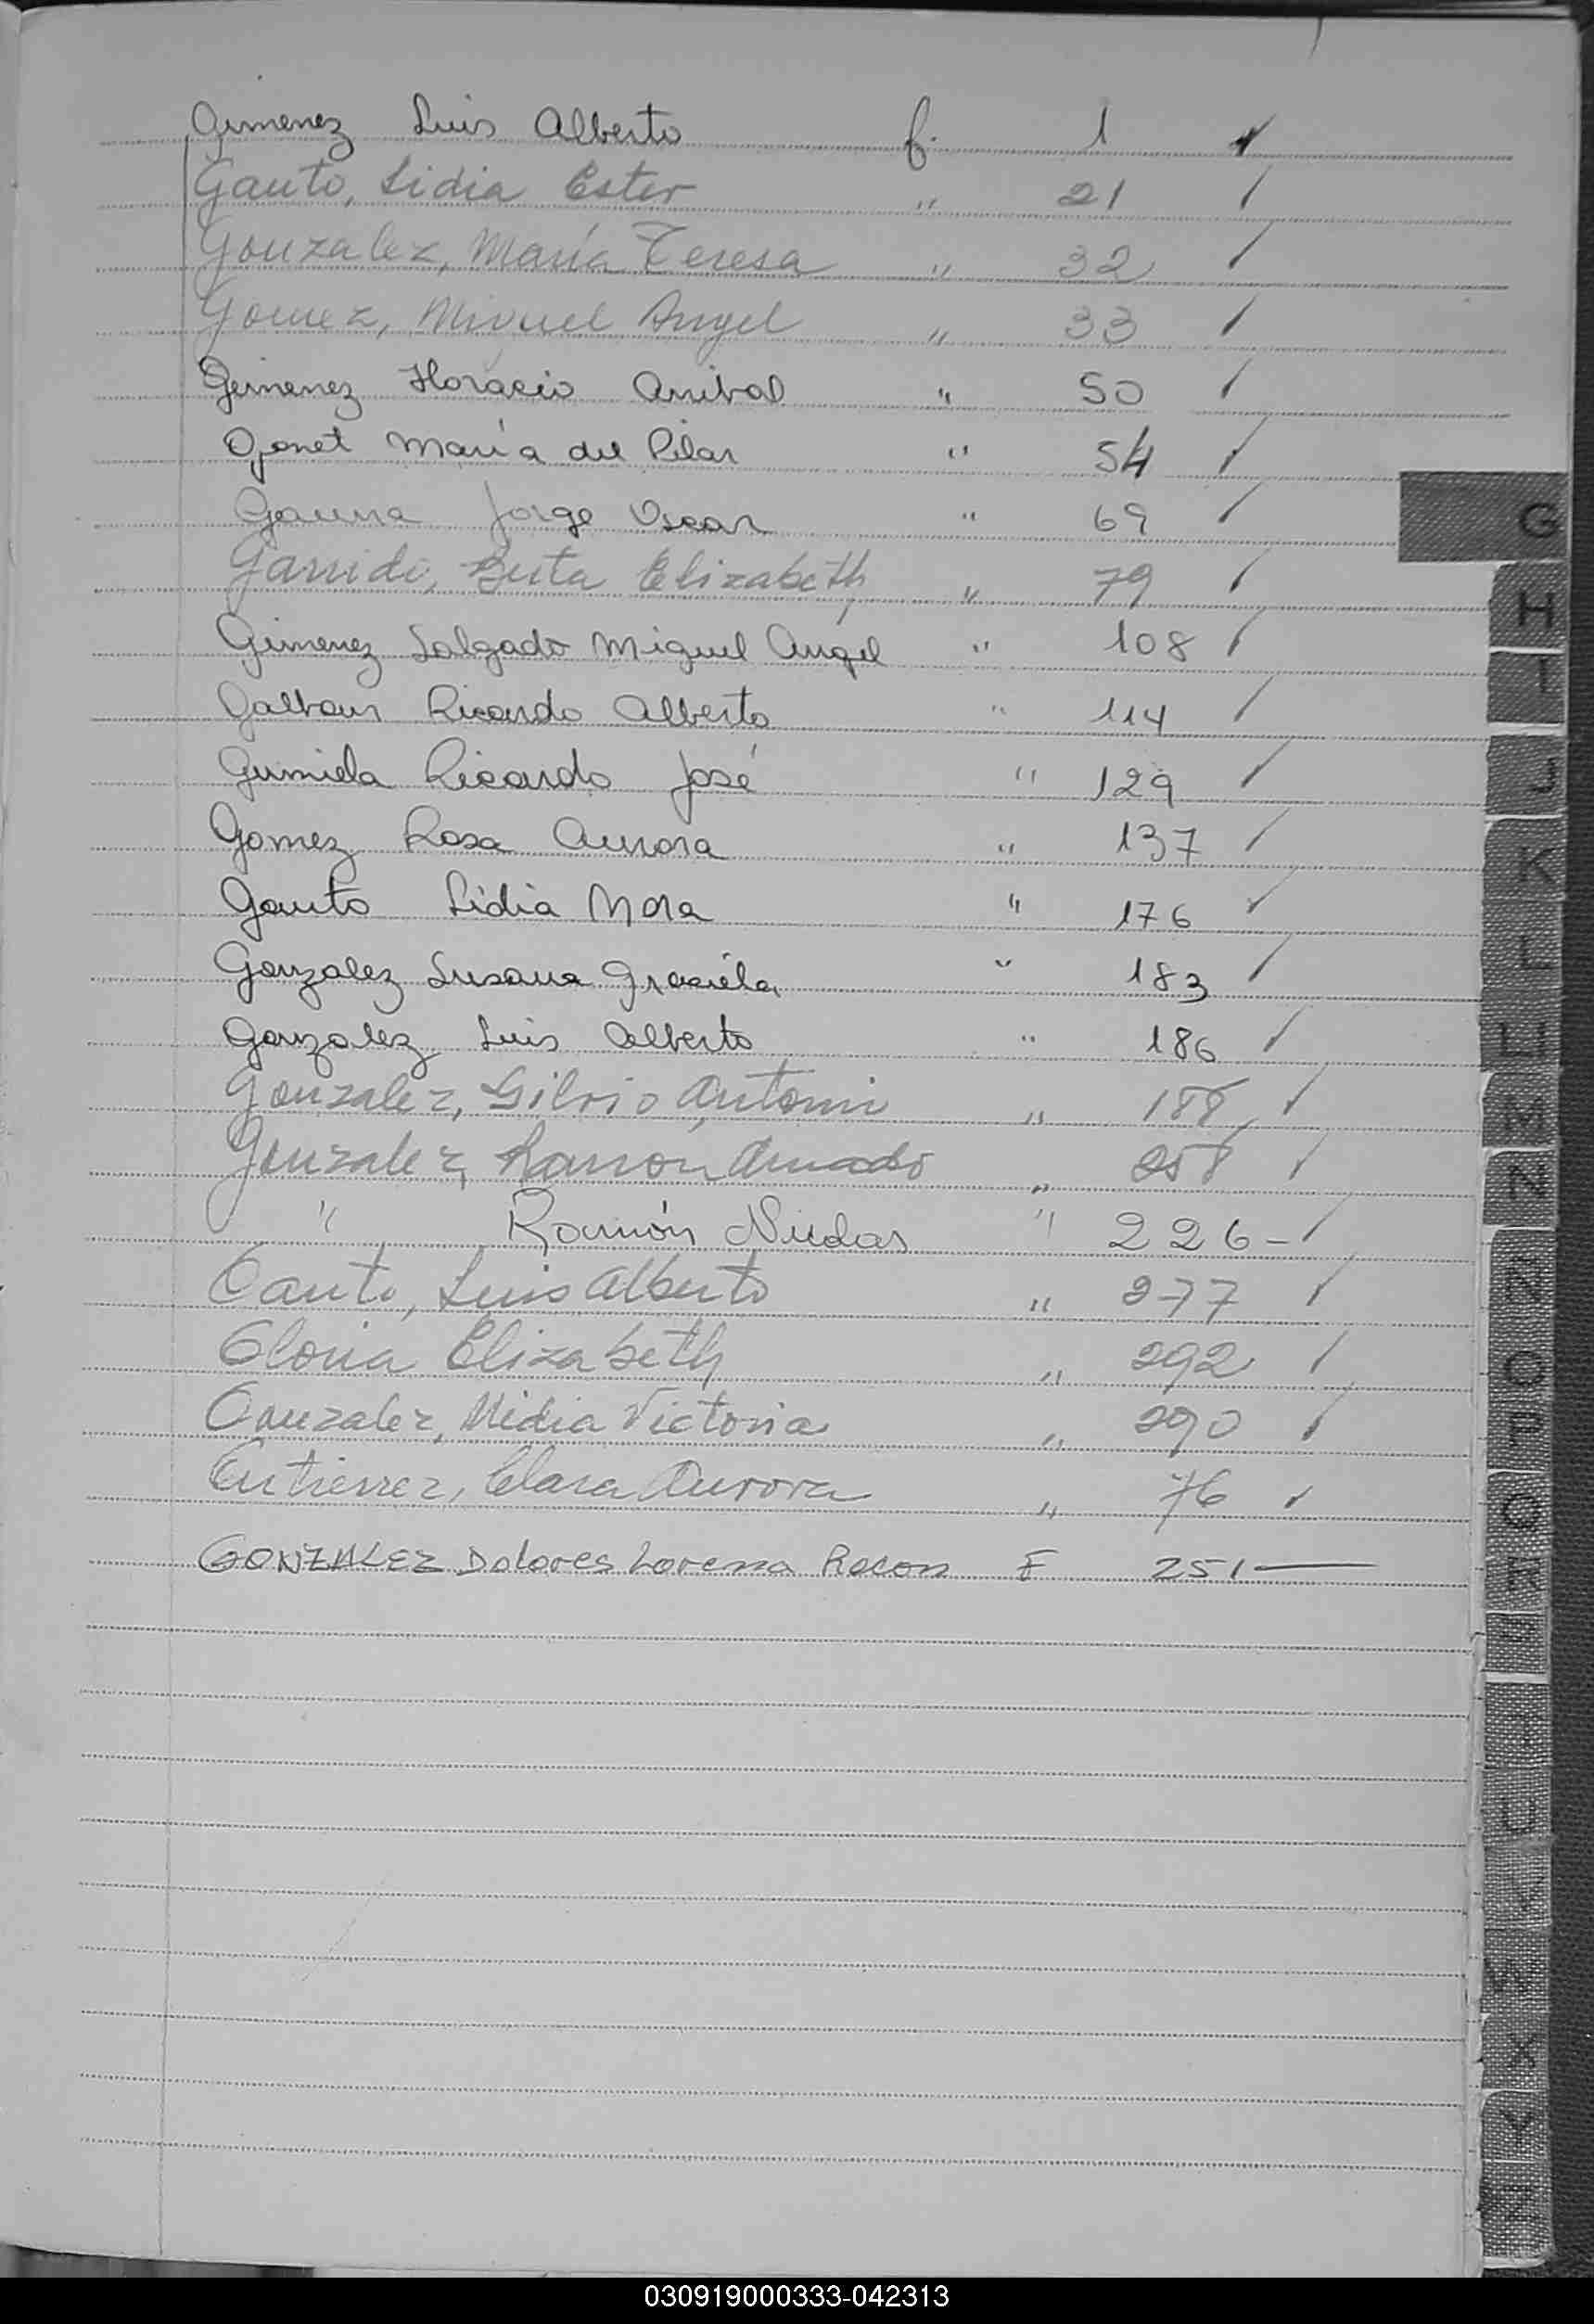 Gimenez Luis Alberto f. 1 ✓
Gauto, Lidia Ester " 21 ✓
Gonzalez, María Teresa " 32 ✓
Gomez, Miguel Angel " 33 ✓
Gimenez Horacio Anibal " 50 ✓
Genet María del Pilar " 54 ✓
Gauna Jorge Oscar " 69 ✓
Garrido, Elizabeth " 79 ✓
Gimenez Salgado Miguel Angel " 108 ✓
Ricardo Alberto " 114 ✓
Gumiela Ricardo José " 129 ✓
Gomez Rosa Aurora " 137 ✓
Gauto Lidia Nora " 176 ✓
Gonzalez Susana Graciela " 183 ✓
Gonzalez Luis Alberto " 186 ✓
Gonzalez, Silvio Antonio " ✓
Gonzalez, Ramon Amado " 258 ✓
" Ramón Nicolas " 226 - ✓
Gauto, Luis Alberto " 277 ✓
Gloria Elizabeth " 292 ✓
Gonzalez, Nidia Victoria " 290 ✓
Gutierrez, Clara Aurora " 76 ✓
GONZALEZ Dolores Lorena Rocon F 251 —
G
H
I
J
K
L
LL
M
N
Ñ
O
P
Q
R
S
T
U
V
W
X
Y
Z
030919000333-042313